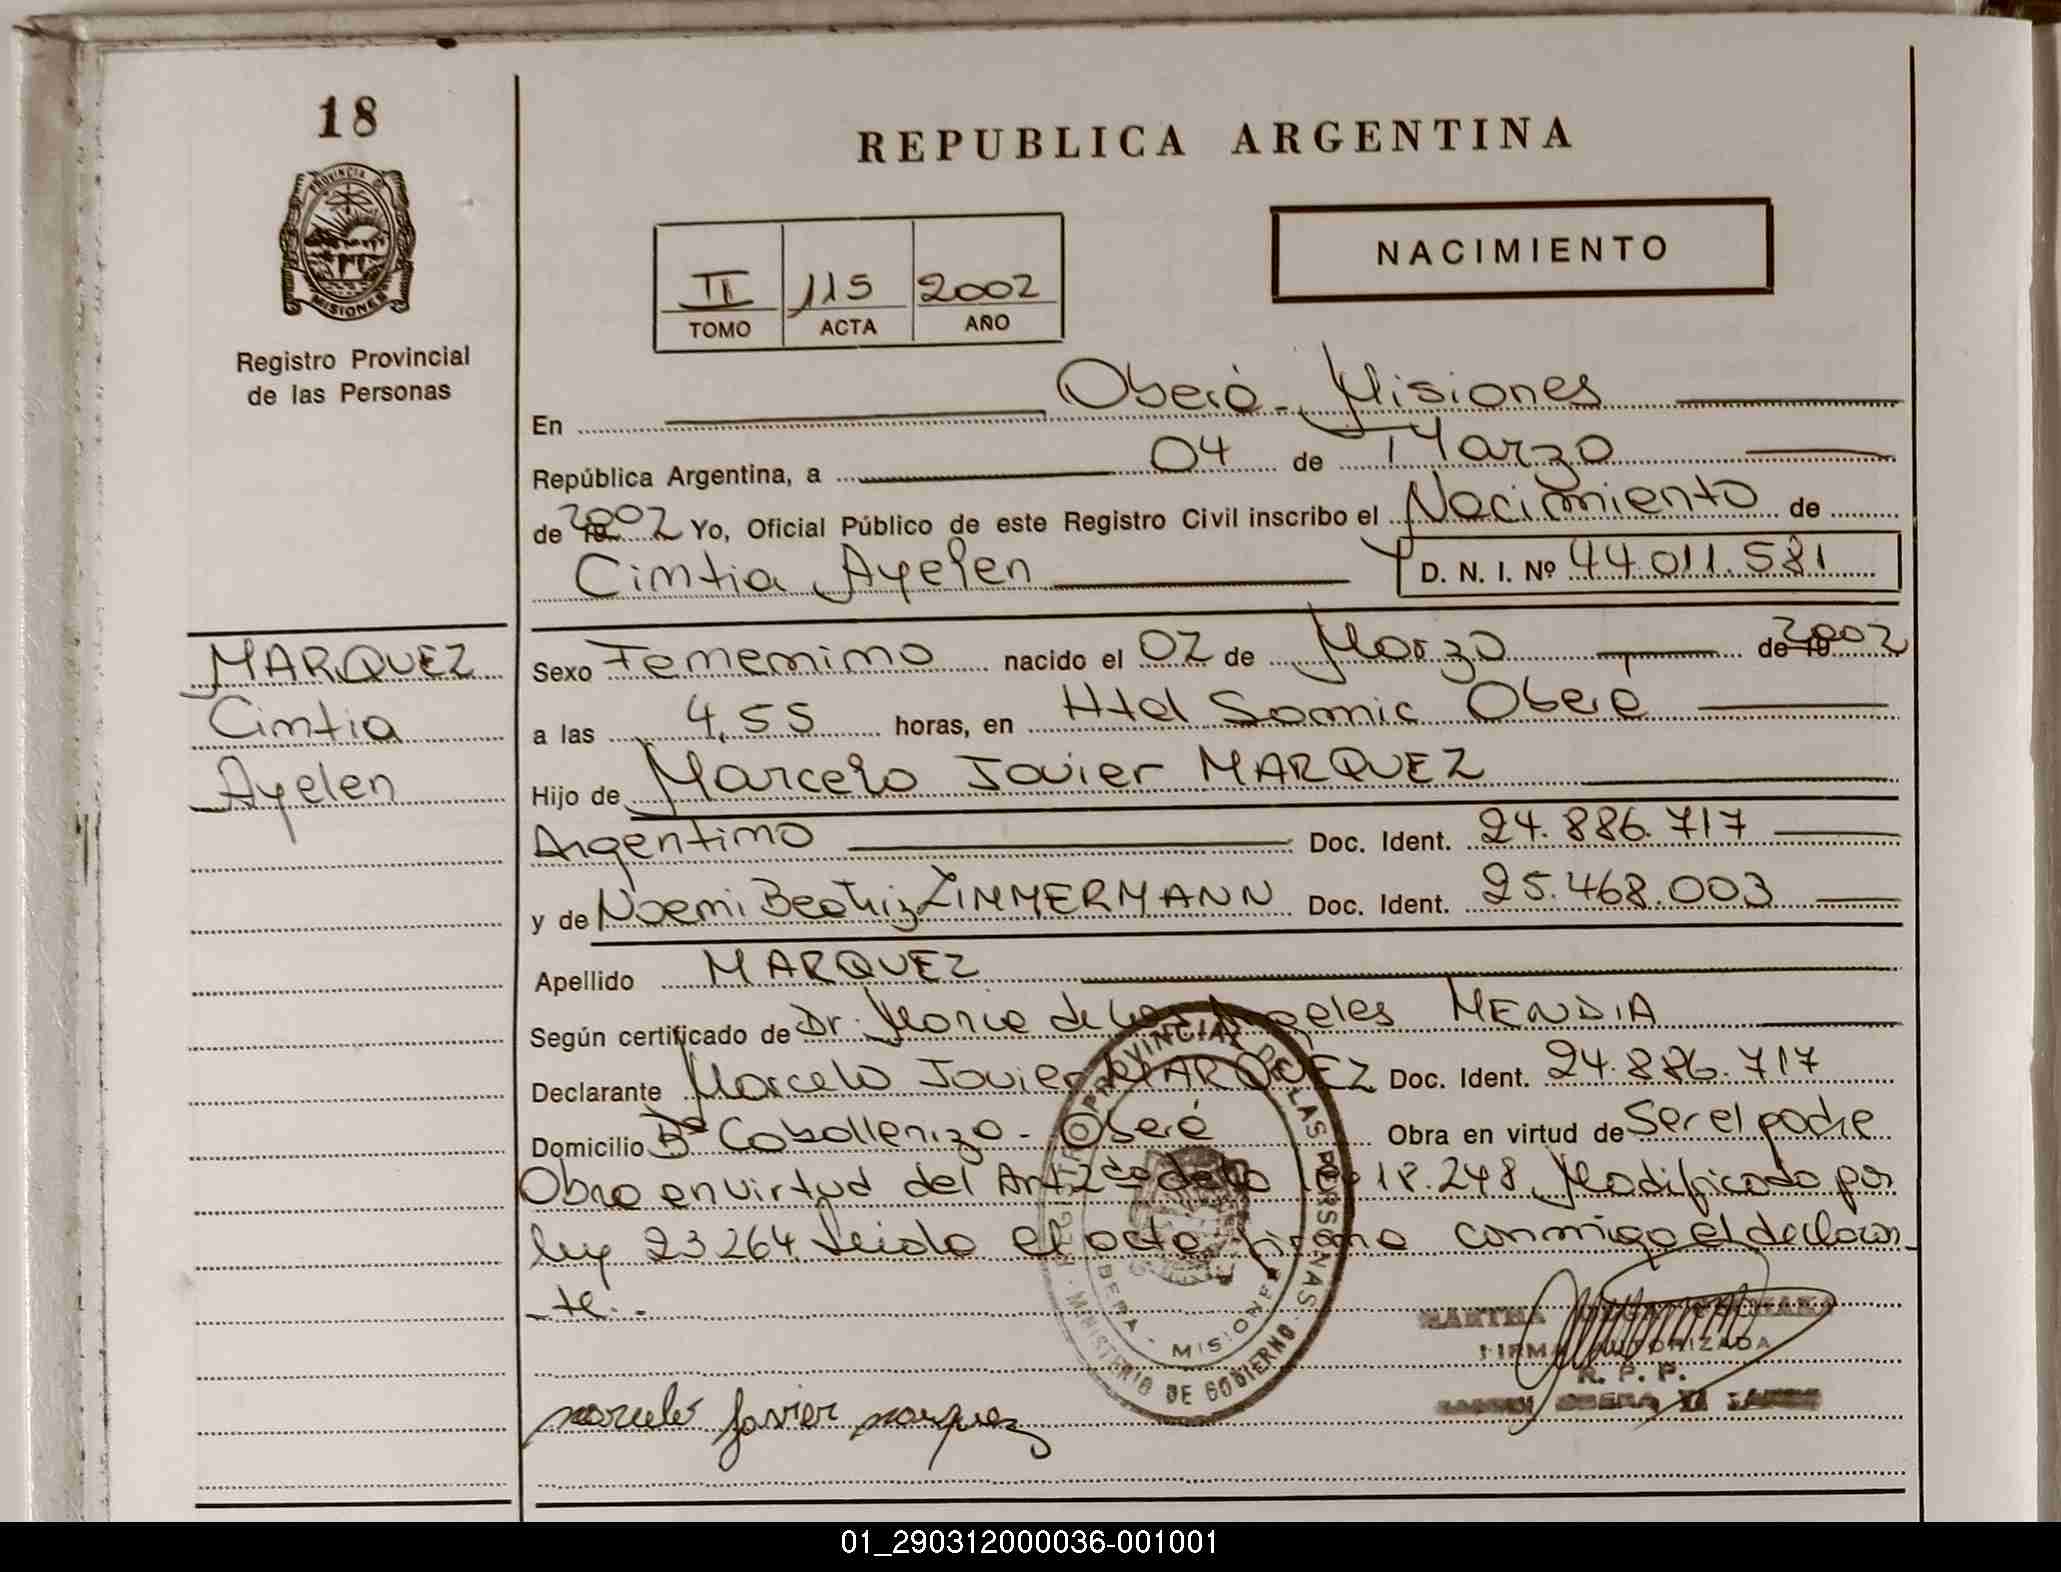 18
REPUBLICA ARGENTINA
PROVINCIA DE
MISIONES
Registro Provincial
de las Personas
II 115 2002
TOMO ACTA AÑO
NACIMIENTO
En Oberá - Misiones
República Argentina, a 04 de Marzo
de 2002 Yo, Oficial Público de este Registro Civil inscribo el Nacimiento de
Cintia Ayelen D. N. I. Nº 44.011.581
MARQUEZ
Cintia
Ayelen
Sexo Femenino nacido el 02 de Marzo de 19 2002
a las 4,55 horas, en Htal Samic Oberá
Hijo de Marcelo Javier MARQUEZ
Argentino Doc. Ident. 24.886.717
y de Noemi Beatriz ZIMMERMANN Doc. Ident. 25.468.003
Apellido MARQUEZ
Según certificado de Dr. Maria de los Angeles MENDIA
Declarante Marcelo Javier MARQUEZ Doc. Ident. 24.886.717
Domicilio Bº Caballerizo - Oberá Obra en virtud de Ser el padre
Obra en virtud del Art 2do de la ley 18.248 Modificado por
ley 23264 Leida el acta firma conmigo el declaran
-te.-
REGISTRO PROVINCIAL DE LAS PERSONAS
MINISTERIO DE GOBIERNO
OBERA - MISIONES
MARTHA
FIRMA AUTORIZADA
R. P. P.
marcelo Javier marquez
01_290312000036-001001